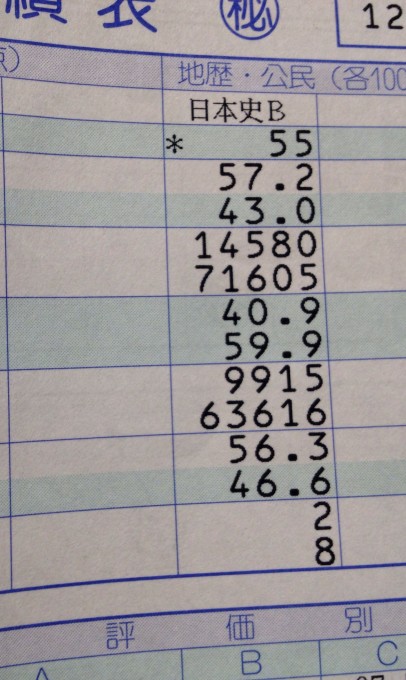 績表 ㊙ 12
地歴・公民(各100
日本史B
* 55
57.2
43.0
14580
71605
40.9
59.9
9915
63616
56.3
46.6
2
8
評価別
B C